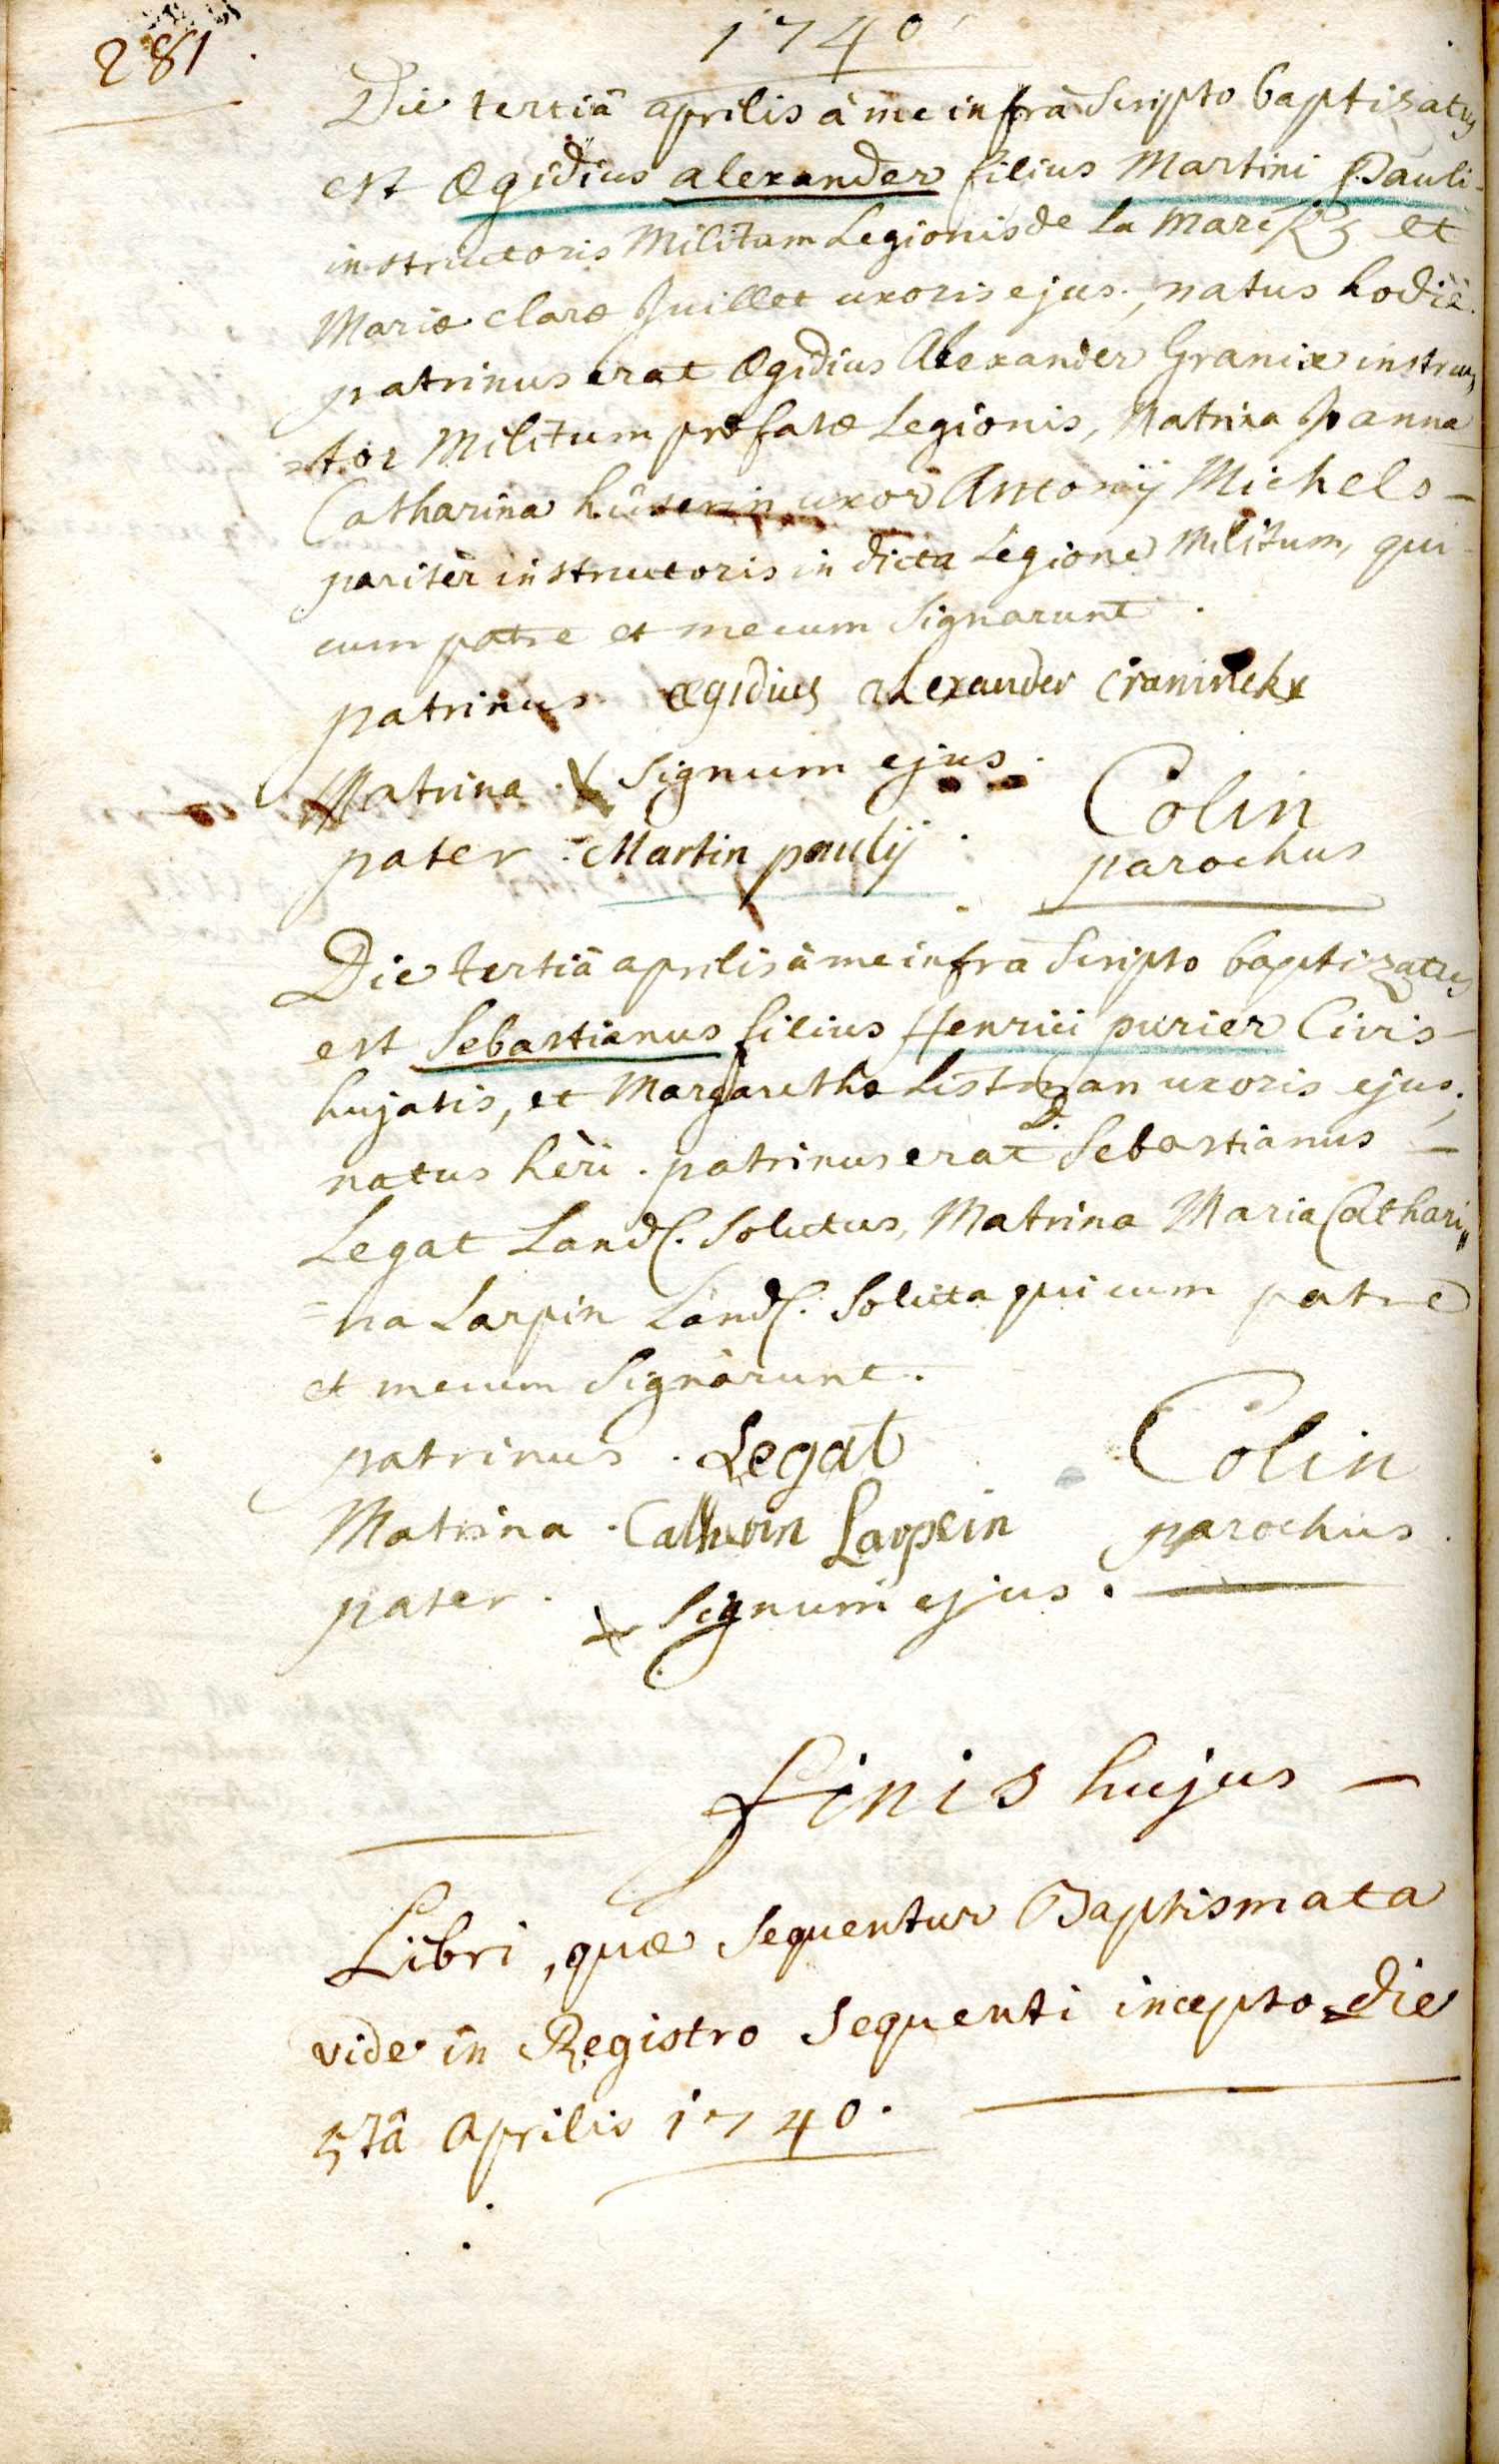 281.
1740
Die tertiâ aprilis â me infrà Scripto baptisatus
est Ægidius alexander filius Martini Pauli-
instructoris Militum Legionis de la Marck et
Mariæ claræ Juillet uxoris ejus., natus hodiè.
patrinus erat Ægidius Alexander Granix instruc„
=tor Militum præfatæ Legionis, Matrina Joanna
Catharina hûserin uxor Antonij Michels -
pariter instructoris in dicta Legione Militum, qui
cum patre et mecum Signarunt.
patrinus ægidius alexander craninckx
Matrina . x Signum ejus.
Colin
pater : Martin paulij .
parochus
Die tertiâ aprilis â me infra Scripto baptizatus
est Sebastianus filius Henrici purier Civis-
hujatis, et Margarethæ Listman uxoris ejus;
natus hèri . patrinus erat D. Sebastianus -
Legat Land. Solutus, Matrina Maria Cathari„
=na Larpin Land. Soluta qui cum patre
et mecum Signârunt.
patrinus . Legat
Colin
Matrina . Catherin Larpein
parochus.
pater . x Signum ejus.
finis hujus -
Libri, quæ Sequentur Baptismata
vide in Registro Sequenti incepto die
5tâ Aprilis 1740.